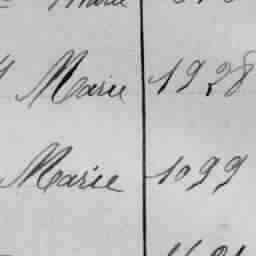 Marie 1928
Marie 1099